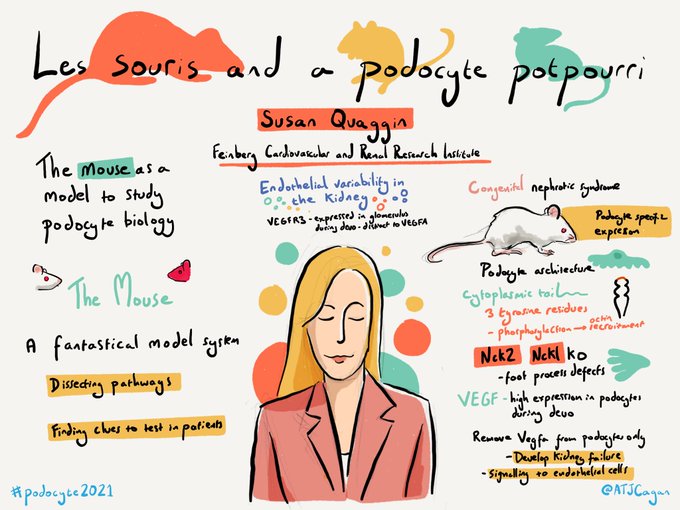 Les souris and a podocyte potpourri
Susan Quaggin
Feinberg Cardiovascular and Renal Research Institute
The mouse as a
model to study
podocyte biology
The Mouse
A fantastical model system
Dissecting pathways
Finding clues to test in patients
Endothelial variability in
the Kidney
VEGFR3 - expressed in glomerulus
during devo - distinct to VEGFA
Congenital nephrotic syndrome
Podocyte specific
expression
Podocyte architecture
Cytoplasmic tail
3 tyrosine residues
- phosphorylaction → actin
recruitment
Nck2 Nck1 KO
- foot process defects
VEGF - high expression in podocytes
during devo
Remove Vegfa from podocytes only
- Develop Kidney failure
- Signalling to endothelial cells
#podocyte2021
@ATJCagan